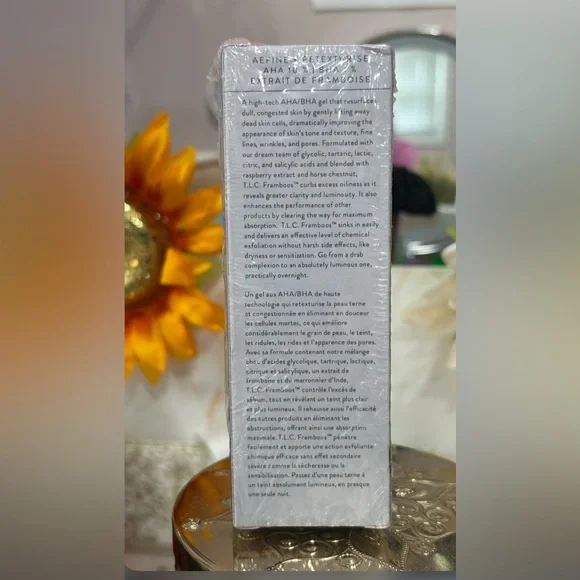 REFINE + RETEXTURISE
AHA 10 % | BHA %
EXTRAIT DE FRAMBOISE
A high-tech AHA/BHA gel that resurfaces
dull, congested skin by gently lifting away
dead skin cells, dramatically improving the
appearance of skin's tone and texture, fine
lines, wrinkles, and pores. Formulated with
our dream team of glycolic, tartaric, lactic,
citric, and salicylic acids and blended with
raspberry extract and horse chestnut,
T.L.C. Framboos™ curbs excess oiliness as it
reveals greater clarity and luminosity. It also
enhances the performance of other
products by clearing the way for maximum
absorption. T.L.C. Framboos™ sinks in easily
and delivers an effective level of chemical
exfoliation without harsh side effects, like
dryness or sensitization. Go from a drab
complexion to an absolutely luminous one,
practically overnight.
Un gel aux AHA/BHA de haute
technologie qui retexturise la peau terne
et congestionnée en éliminant en douceur
les cellules mortes, ce qui améliore
considérablement le grain de peau, le teint,
les ridules, les rides et l'apparence des pores.
Avec sa formule contenant notre mélange
d'acides glycolique, tartrique, lactique,
citrique et salicylique, un extrait de
framboise et du marronnier d'Inde,
T.L.C. Framboos™ contrôle l'excès de
sébum, tout en révélant un teint plus clair
et plus lumineux. Il rehausse aussi l'efficacité
des autres produits en éliminant les
obstructions, offrant ainsi une absorption
maximale. T.L.C. Framboos™ pénètre
facilement et apporte une action exfoliante
chimique efficace sans effet secondaire
sévère comme la sécheresse ou la
sensibilisation. Passez d'une peau terne à
un teint absolument lumineux, en presque
une seule nuit.